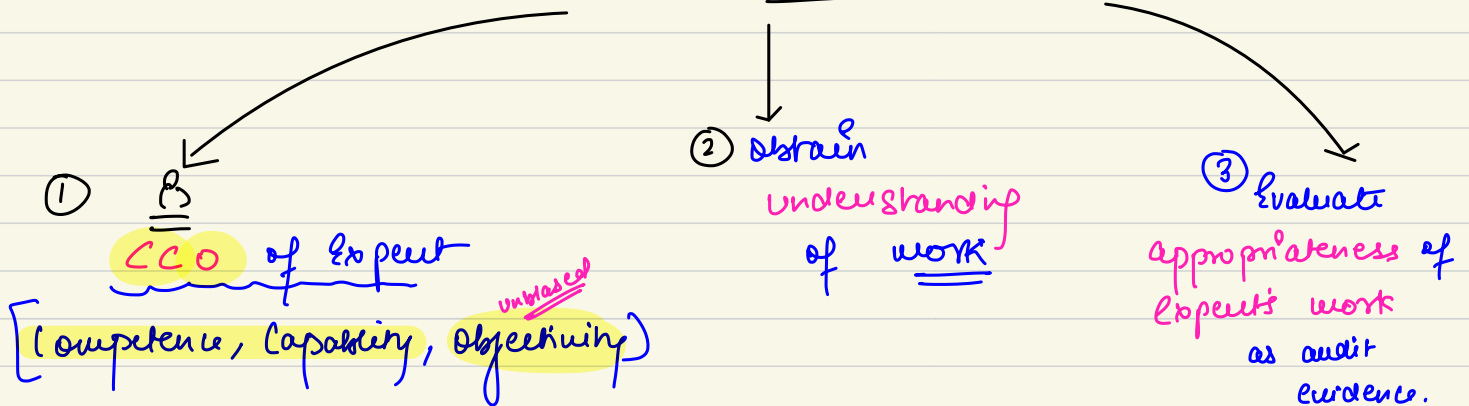 ①
CCO of Expert
unbiased
[Competence, Capability, Objectivity)
② Obtain
understanding
of work
③ Evaluate
appropriateness of
expert's work
as audit
evidence.